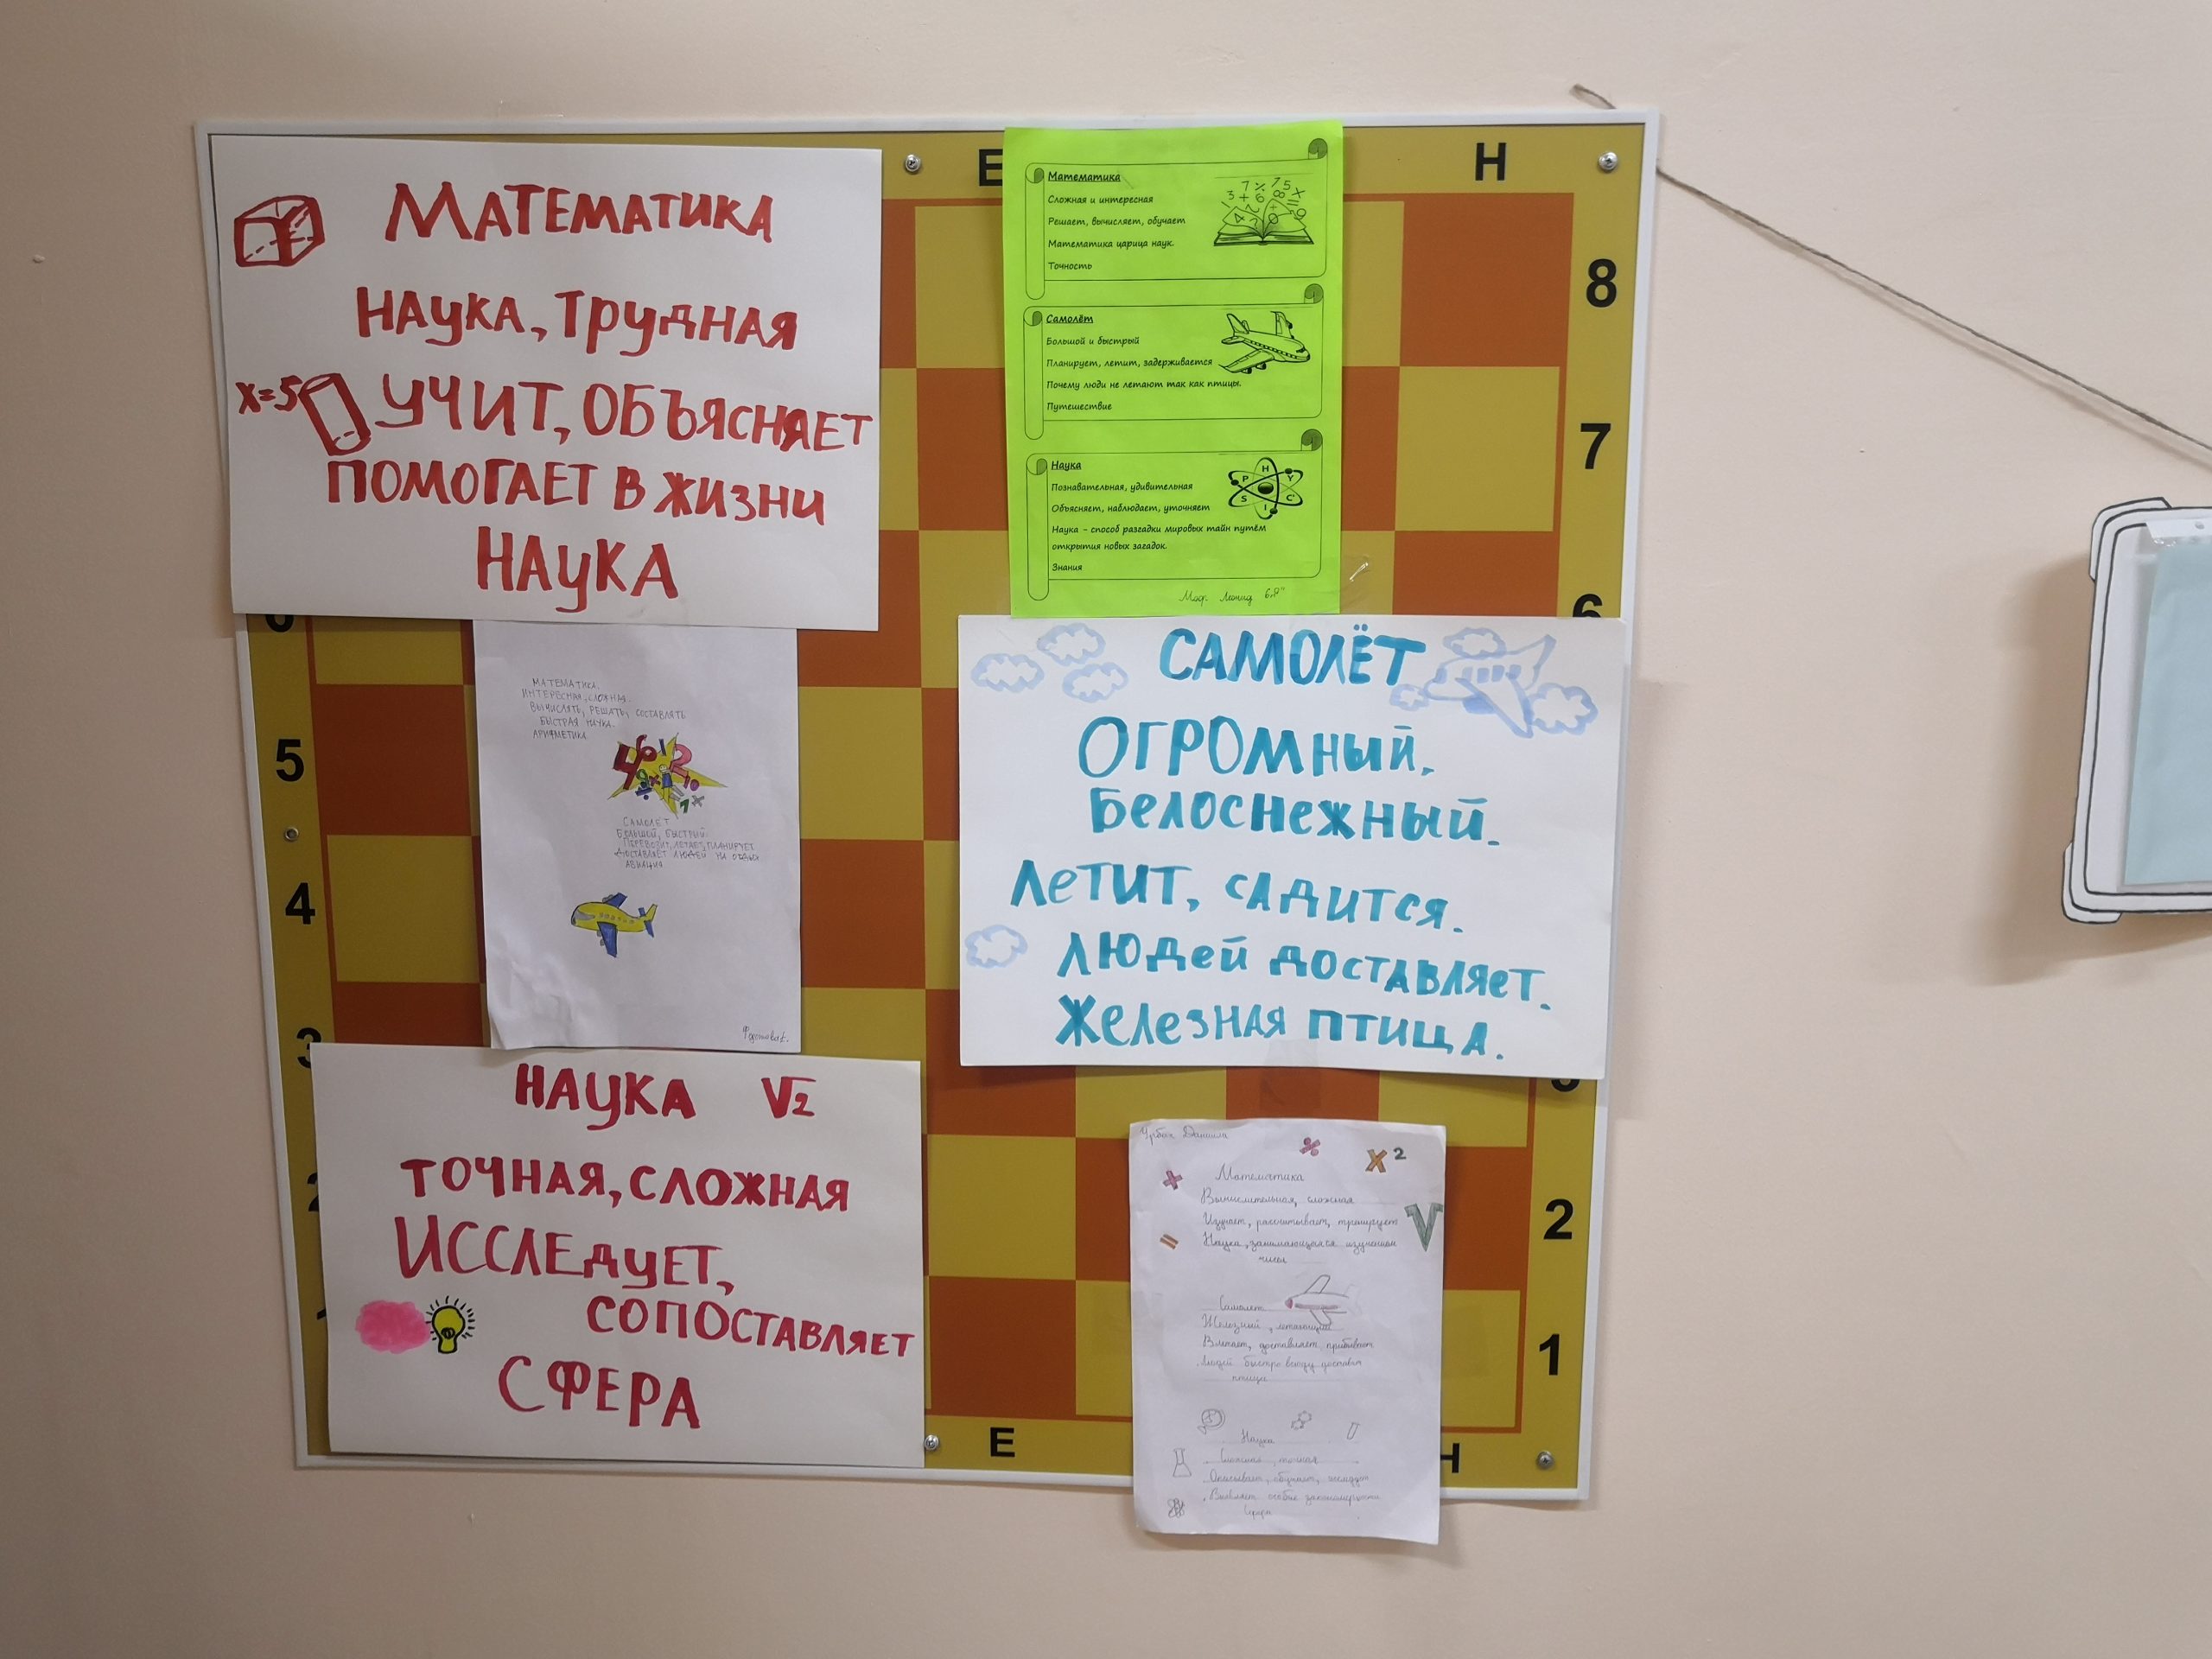 МАТЕМАТИКА
НАУКА, ТРУДНАЯ
X=5
УЧИТ, ОБЪЯСНЯЕТ
ПОМОГАЕТ В ЖИЗНИ
НАУКА
E
H
Математика
Сложная и интересная
Решает, вычисляет, обучает
Математика царица наук.
Точность
Самолёт
Большой и быстрый
Планирует, летит, задерживается
Почему люди не летают так как птицы.
Путешествие
Наука
Познавательная, удивительная
Объясняет, наблюдает, уточняет
Наука - способ разгадки мировых тайн путём
открытия новых загадок.
Знания
P H Y S I C
Леонид 6,8"
8
7
6
МАТЕМАТИКА.
ИНТЕРЕСНАЯ, СЛОЖНАЯ.
ВЫЧИСЛЯТЬ, РЕШАТЬ, СОСТАВЛЯТЬ
БЫСТРАЯ НАУКА.
АРИФМЕТИКА
САМОЛЕТ
БОЛЬШОЙ, БЫСТРЫЙ.
ПЕРЕВОЗИТ, ЛЕТАЕТ, ПЛАНИРУЕТ
ДОСТАВЛЯЕТ ЛЮДЕЙ НА ОТДЫХ
АВИАЦИЯ
САМОЛЁТ
ОГРОМНЫЙ.
БЕЛОСНЕЖНЫЙ.
ЛЕТИТ, САДИТСЯ.
ЛЮДЕЙ ДОСТАВЛЯЕТ.
ЖЕЛЕЗНАЯ ПТИЦА.
6
5
4
3
2
НАУКА √2
ТОЧНАЯ, СЛОЖНАЯ
ИССЛЕДУЕТ,
СОПОСТАВЛЯЕТ
СФЕРА
Урбан Данила
% X²
+
=
√
Математика
Вычислительная, сложная
Изучает, рассчитывает, тренирует
Наука, занимающаяся изучением
чисел
Самолет
Железный, летающий
Взлетает, доставляет, прибывает
Людей быстро всюду доставит
птица
Наука
Сложная, точная
Описывает, обучает,
Выявляет особые закономерности
Сфера
2
1
E
H